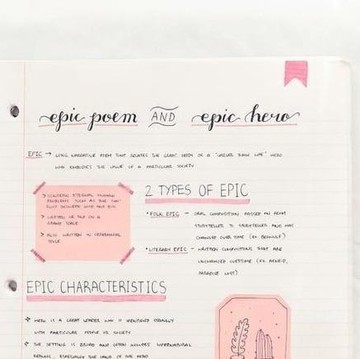 epic poem AND epic hero
EPIC → LONG NARRATIVE POEM THAT RELATES THE GREAT DEEDS OF A "LARGER THAN LIFE" HERO
WHO EMBODIES THE VALUES OF A PARTICULAR SOCIETY
2 TYPES OF EPIC
FOLK EPIC - ORAL COMPOSITION PASSED ON FROM
STORYTELLER TO STORYTELLER AND MAY
CHANGE OVER TIME (EX. BEOWULF)
LITERARY EPIC - WRITTEN COMPOSITIONS THAT ARE
UNCHANGED OVERTIME (EX. AENEID,
PARADISE LOST)
> CONTAIN ETERNAL HUMAN
PROBLEMS SUCH AS THE CON-
FLICT BETWEEN GOOD AND EVIL
> WRITTEN OR TOLD ON A
GRAND SCALE
> ALSO WRITTEN IN CEREMONIAL
STYLE
EPIC CHARACTERISTICS
HERO IS A GREAT LEADER WHO IS IDENTIFIED STRONGLY
WITH PARTICULAR PEOPLE OR SOCIETY
THE SETTING IS BROAD AND OFTEN INCLUDES SUPERNATURAL
REALMS, ESPECIALLY THE LAND OF THE DEAD